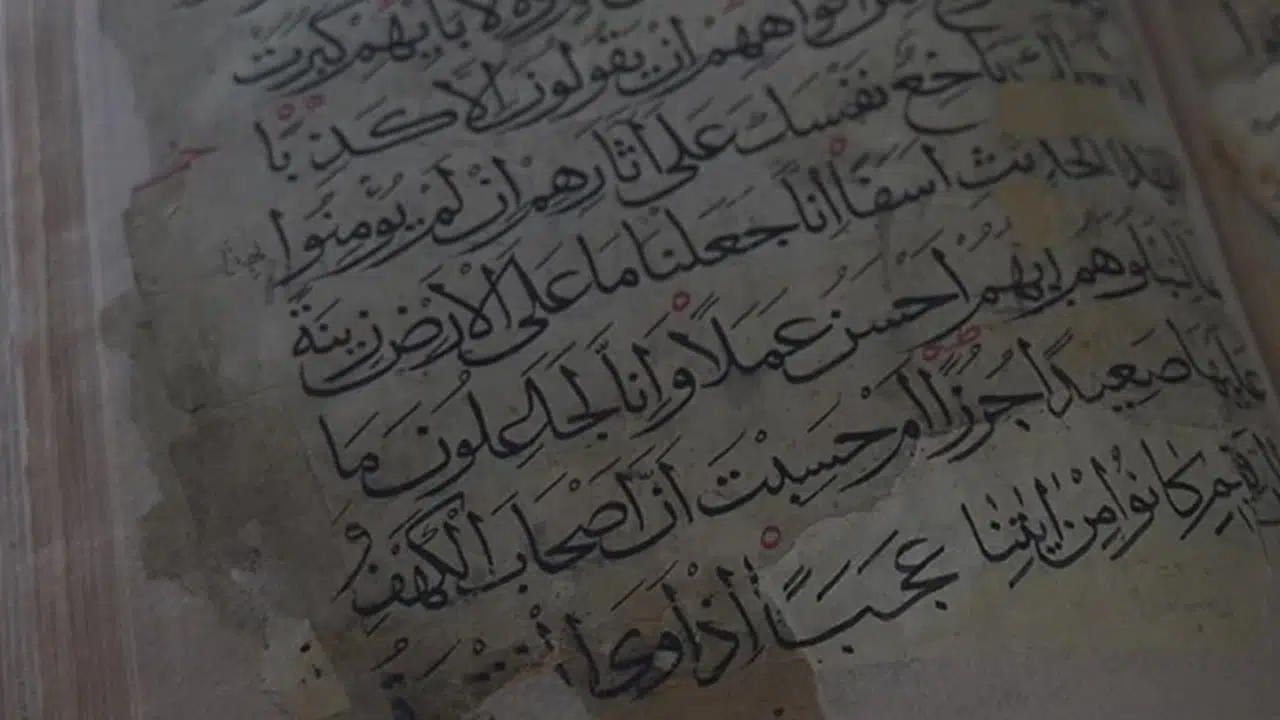 لا بايهم كبرت
افواههم ان يقولون الا كذبا
باخع نفسك على اثارهم ان لم يؤمنوا
بهذا الحديث اسفا انا جعلنا ما على الارض زينة
لنبلوهم ايهم احسن عملا وانا لجاعلون ما
عليها صعيدا جرزا ام حسبت ان اصحاب الكهف و
الرقيم كانوا من ايتنا عجبا اذ اوى